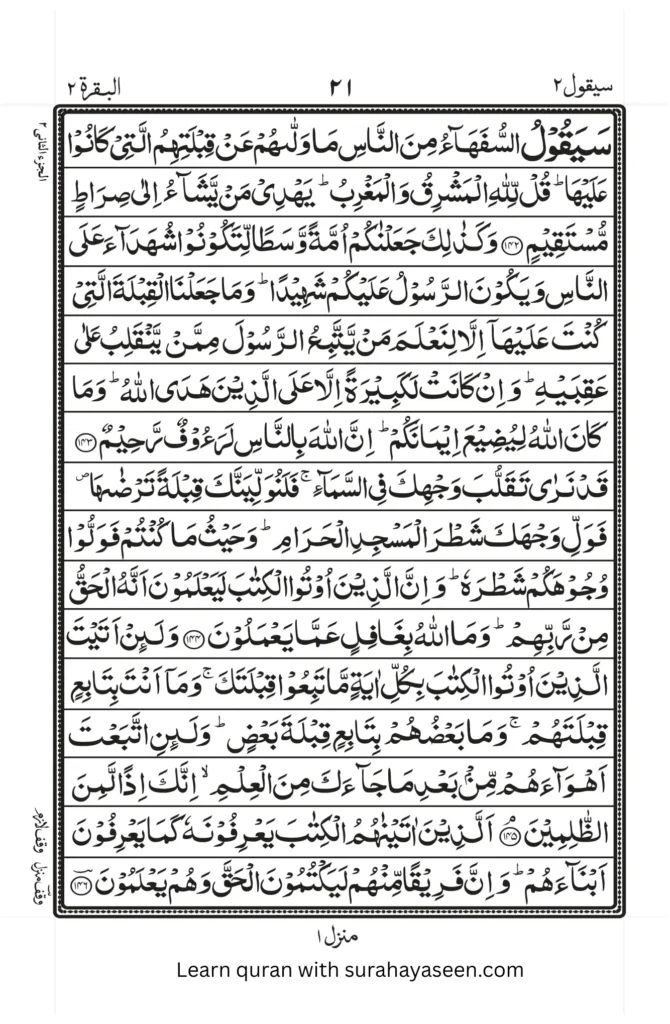 سيقول ٢ ٢١ البقرة ٢
الجزء الثاني ٢
سَيَقُوۡلُ السُّفَهَآءُ مِنَ النَّاسِ مَا وَلّٰىهُمۡ عَنۡ قِبۡلَتِهِمُ الَّتِىۡ كَانُوۡا
عَلَيۡهَا ؕ قُلْ لِّلّٰهِ الۡمَشۡرِقُ وَالۡمَغۡرِبُ ؕ يَهۡدِىۡ مَنۡ يَّشَآءُ اِلٰى صِرَاطٍ
مُّسۡتَقِيۡمٍ ﴿۱۴۲﴾ وَكَذٰلِكَ جَعَلۡنٰكُمۡ اُمَّةً وَّسَطًا لِّتَکُوۡنُوۡا شُهَدَآءَ عَلَى
النَّاسِ وَيَكُوۡنَ الرَّسُوۡلُ عَلَيۡكُمۡ شَهِيۡدًا ؕ وَمَا جَعَلۡنَا الۡقِبۡلَةَ الَّتِىۡ
كُنۡتَ عَلَيۡهَآ اِلَّا لِنَعۡلَمَ مَنۡ يَّتَّبِعُ الرَّسُوۡلَ مِمَّنۡ يَّنۡقَلِبُ عَلٰى
عَقِبَيۡهِ ؕ وَاِنۡ كَانَتۡ لَكَبِيۡرَةً اِلَّا عَلَى الَّذِيۡنَ هَدَى اللّٰهُ ؕ وَمَا
كَانَ اللّٰهُ لِيُضِيْعَ اِيۡمَانَكُمۡ ؕ اِنَّ اللّٰهَ بِالنَّاسِ لَرَءُوۡفٌ رَّحِيۡمٌ ﴿۱۴۳﴾
قَدۡ نَرٰى تَقَلُّبَ وَجۡهِكَ فِى السَّمَآءِ ۚ فَلَـنُوَلِّيَنَّكَ قِبۡلَةً تَرۡضٰٮهَا ۖ
فَوَلِّ وَجۡهَكَ شَطۡرَ الۡمَسۡجِدِ الۡحَـرَامِ ؕ وَحَيۡثُ مَا كُنۡتُمۡ فَوَلُّوۡا
وُجُوۡهَكُمۡ شَطۡرَهٗ ؕ وَاِنَّ الَّذِيۡنَ اُوۡتُوا الۡكِتٰبَ لَيَـعۡلَمُوۡنَ اَنَّهُ الۡحَـقُّ
مِنۡ رَّبِّهِمۡ ؕ وَمَا اللّٰهُ بِغَافِلٍ عَمَّا يَعۡمَلُوۡنَ ﴿۱۴۴﴾ وَلَٮِٕنۡ اَ تَيۡتَ
الَّذِيۡنَ اُوۡتُوا الۡكِتٰبَ بِكُلِّ اٰيَةٍ مَّا تَبِعُوۡا قِبۡلَتَكَ ۚ وَمَآ اَنۡتَ بِتَابِعٍ
قِبۡلَتَهُمۡ ۚ وَمَا بَعۡضُهُمۡ بِتَابِعٍ قِبۡلَةَ بَعۡضٍ ؕ وَلَٮِٕنِ اتَّبَعۡتَ
اَهۡوَآءَهُمۡ مِّنۡۢ بَعۡدِ مَا جَآءَكَ مِنَ الۡعِلۡمِ ۙ اِنَّكَ اِذًا لَّمِنَ
الظّٰلِمِيۡنَ ۘ ﴿۱۴۵﴾ اَلَّذِيۡنَ اٰتَيۡنٰهُمُ الۡكِتٰبَ يَعۡرِفُوۡنَهٗ كَمَا يَعۡرِفُوۡنَ
اَبۡنَآءَهُمۡ ؕ وَاِنَّ فَرِيۡقًا مِّنۡهُمۡ لَيَكۡتُمُوۡنَ الۡحَـقَّ وَهُمۡ يَعۡلَمُوۡنَ ﴿۱۴۶﴾
وقف لازم
وقف منزل
منزل ١
Learn quran with surahayaseen.com